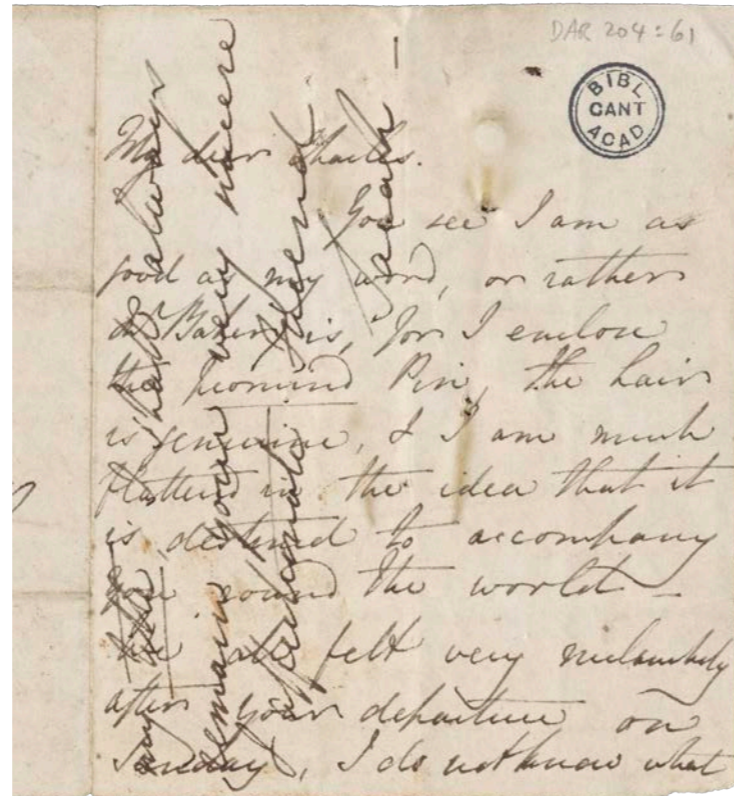 DAR 204:61
BIBL
CANT
ACAD
My dear Charles.
You see I am as
good as my word, or rather
Baker is, for I enclose
the promised Pin, the hair
is genuine, & I am much
flattered in the idea that it
is destined to accompany
you round the world —
We all felt very melancholy
after your departure on
Sunday, I do not know what
I shall always
remain your very sincere
& affectionate friend
Sarah